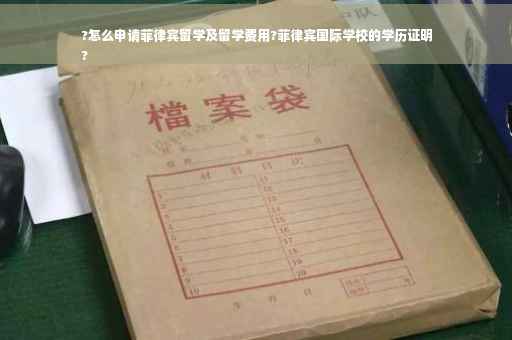 ?怎么申请菲律宾留学及留学费用?菲律宾国际学校的学历证明
?
檔案袋
材料目次
1
2
3
4
5
6
7
8
9
10
11
12
13
14
15
16
17
18
19
20
年 月 日